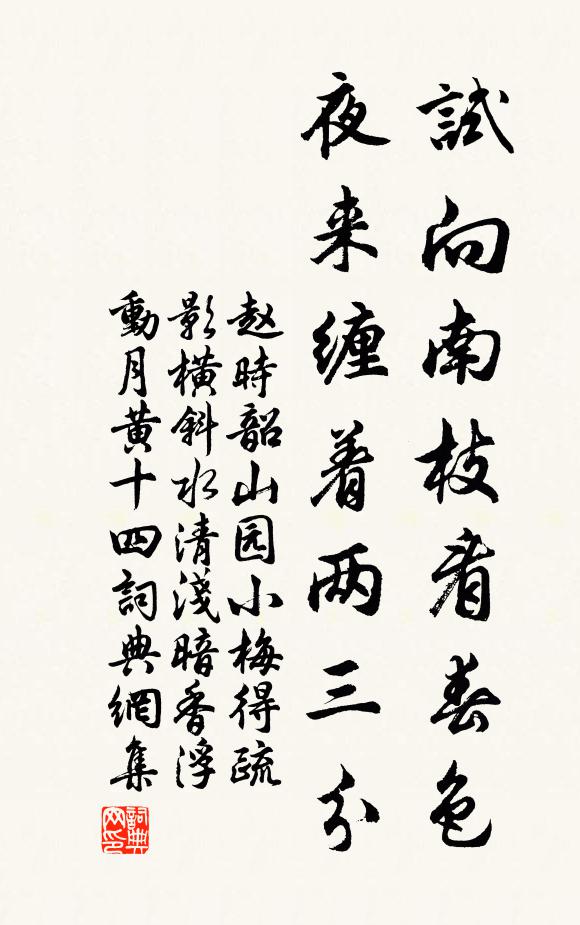 試向南枝看春色
夜来缠着两三分
赵時韶山园小梅得疏
影横斜水清淺暗香浮
動月黄十四詞典網集
詞典网印